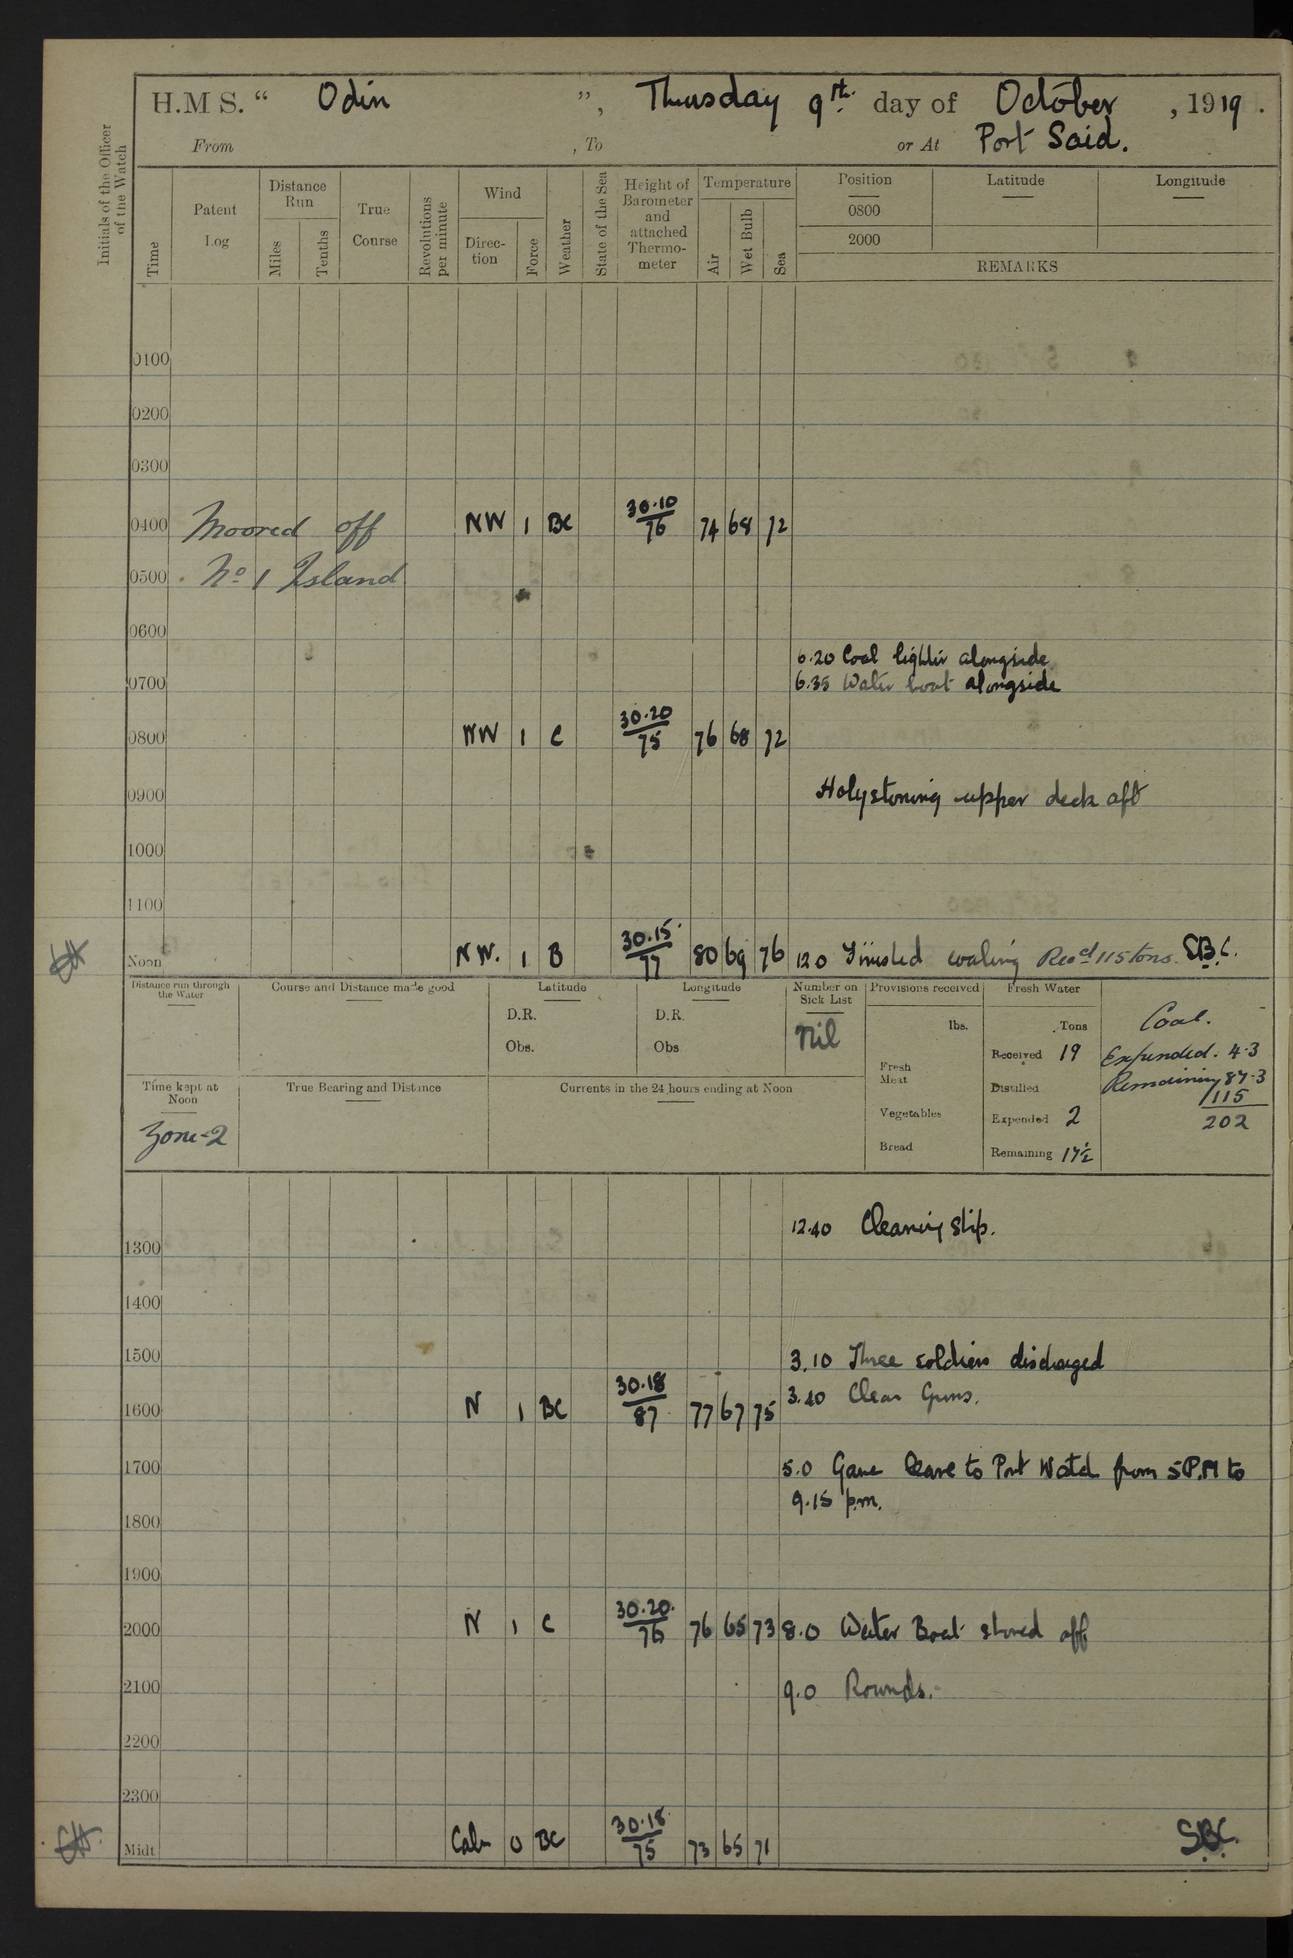 H.M.S. “ Odin ”, Thursday 9th. day of October , 1919 .
From , To or At Port Said.
Initials of the Officer of the Watch
Time
Patent Log
Distance Run
Miles
Tenths
True Course
Revolutions per minute
Wind
Direc-tion
Force
Weather
State of the Sea
Height of Barometer and attached Thermo-meter
Temperature
Air
Wet Bulb
Sea
Position
0800
2000
Latitude
Longitude
REMARKS
0100
0200
0300
0400 Moored off NW 1 BC 30.10/76 74 68 72
0500 No 1 Island
0600
6.20 Coal lighter alongside
0700 6.35 Water boat alongside
0800 NW 1 C 30.20/75 76 68 72
0900 Holystoning upper deck aft
1000
1100
Noon NW. 1 B 30.15/77 80 69 76 12 0 Finished coaling Recd 115 tons. SBC.
Distance run through the Water
Course and Distance made good
Latitude
D.R.
Obs.
Longitude
D.R.
Obs
Number on Sick List
Nil
Provisions received
lbs.
Fresh Meat
Vegetables
Bread
Fresh Water
Tons
Received 19
Distilled
Expended 2
Remaining 17½
Coal.
Expended. 4.3
Remaining 87.3
115
202
Time kept at Noon
Zone-2
True Bearing and Distance
Currents in the 24 hours ending at Noon
12.40 Cleaning ship.
1300
1400
1500 3.10 Three soldiers discharged
3.40 Clean Guns.
1600 N 1 BC 30.18/87 77 67 75
1700 5.0 Gave leave to Port Watch from 5 P.M to
9.15 p.m.
1800
1900
2000 N 1 C 30.20./76 76 65 73 8.0 Water Boat shoved off
2100 9.0 Rounds.
2200
2300
Midt Calm 0 BC 30.18/75 73 65 71 SBC.